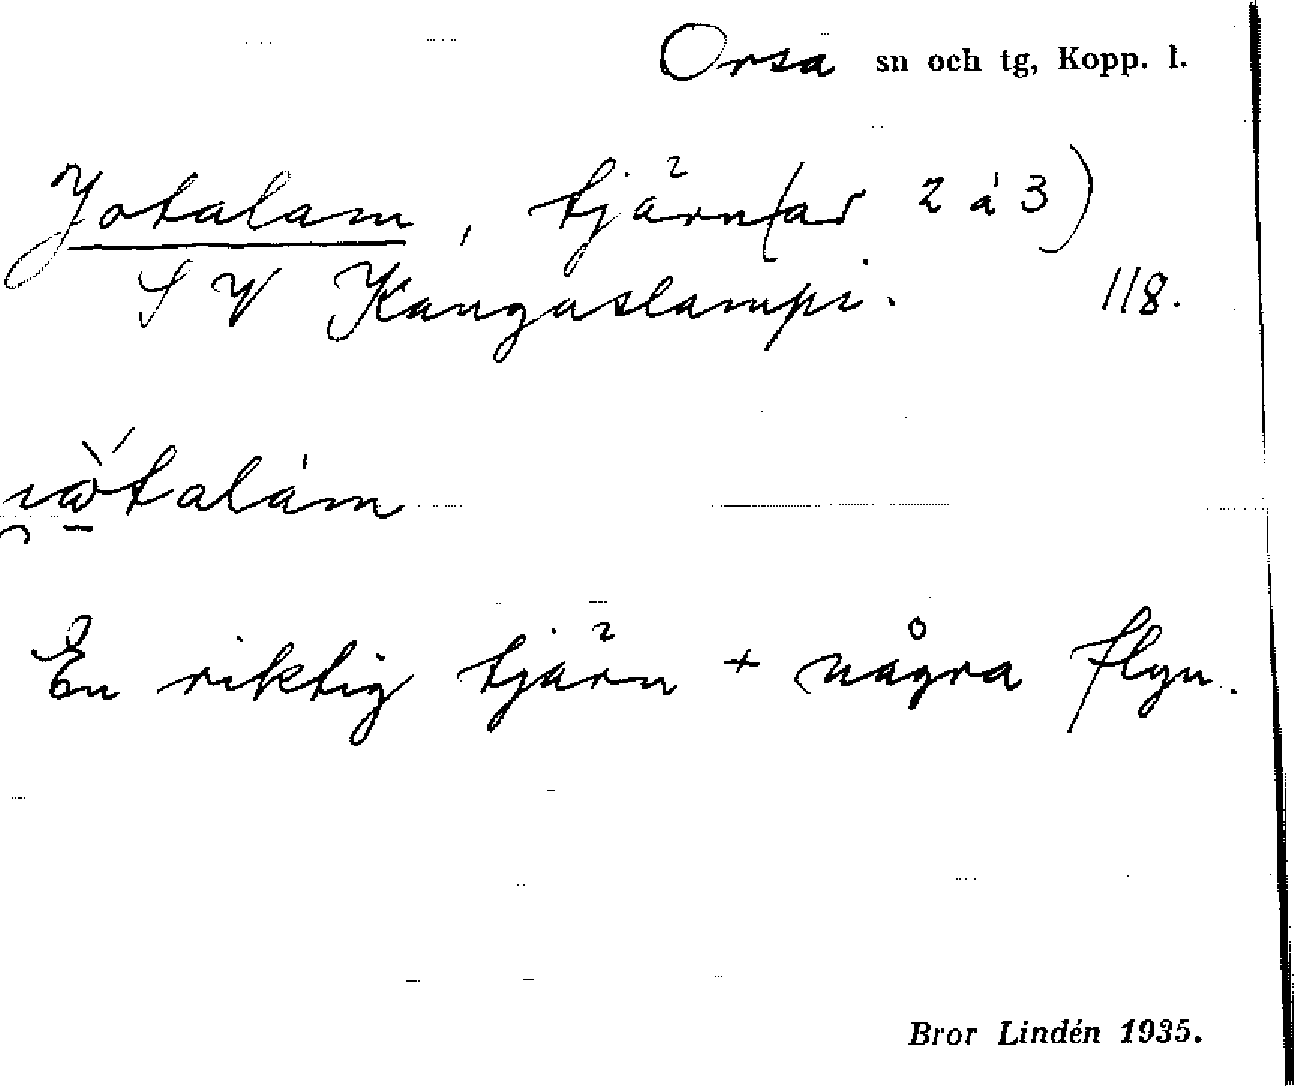 Orsa sn och tg, Kopp. l.
Jotalam, tjärn(ar 2 à 3)
S V Kangaslampi. 118.
En riktig tjärn + några flyn.
Bror Lindén 1935.